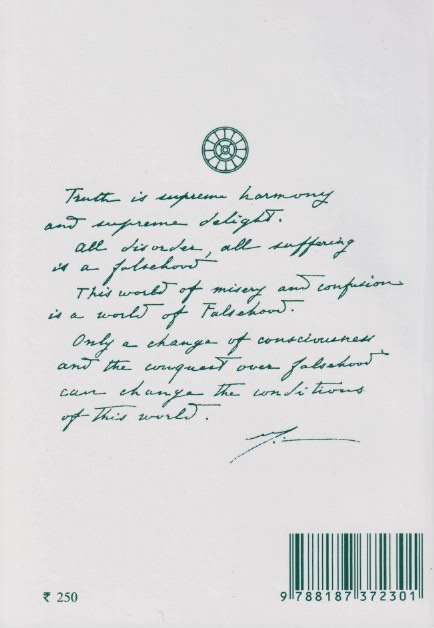 Truth is supreme harmony
and supreme delight.
All disorder, all suffering
is a falsehood
This world of misery and confusion
is a world of Falsehood.
Only a change of consciousness
and the conquest over falsehood
can change the conditions
of this world.
₹ 250
9 788187 372301